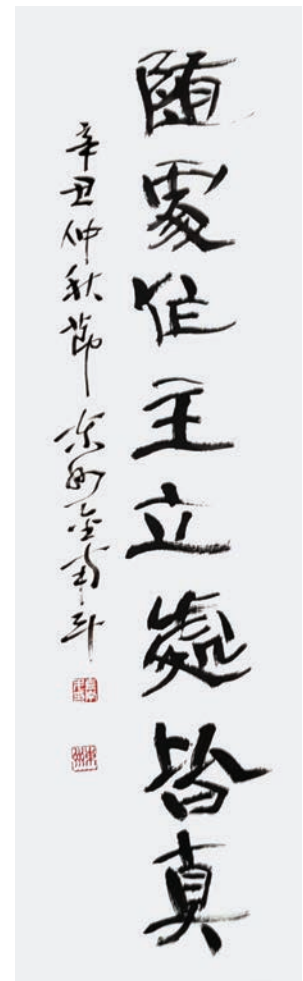 随處作主立處皆真
辛丑仲秋節 金南斗